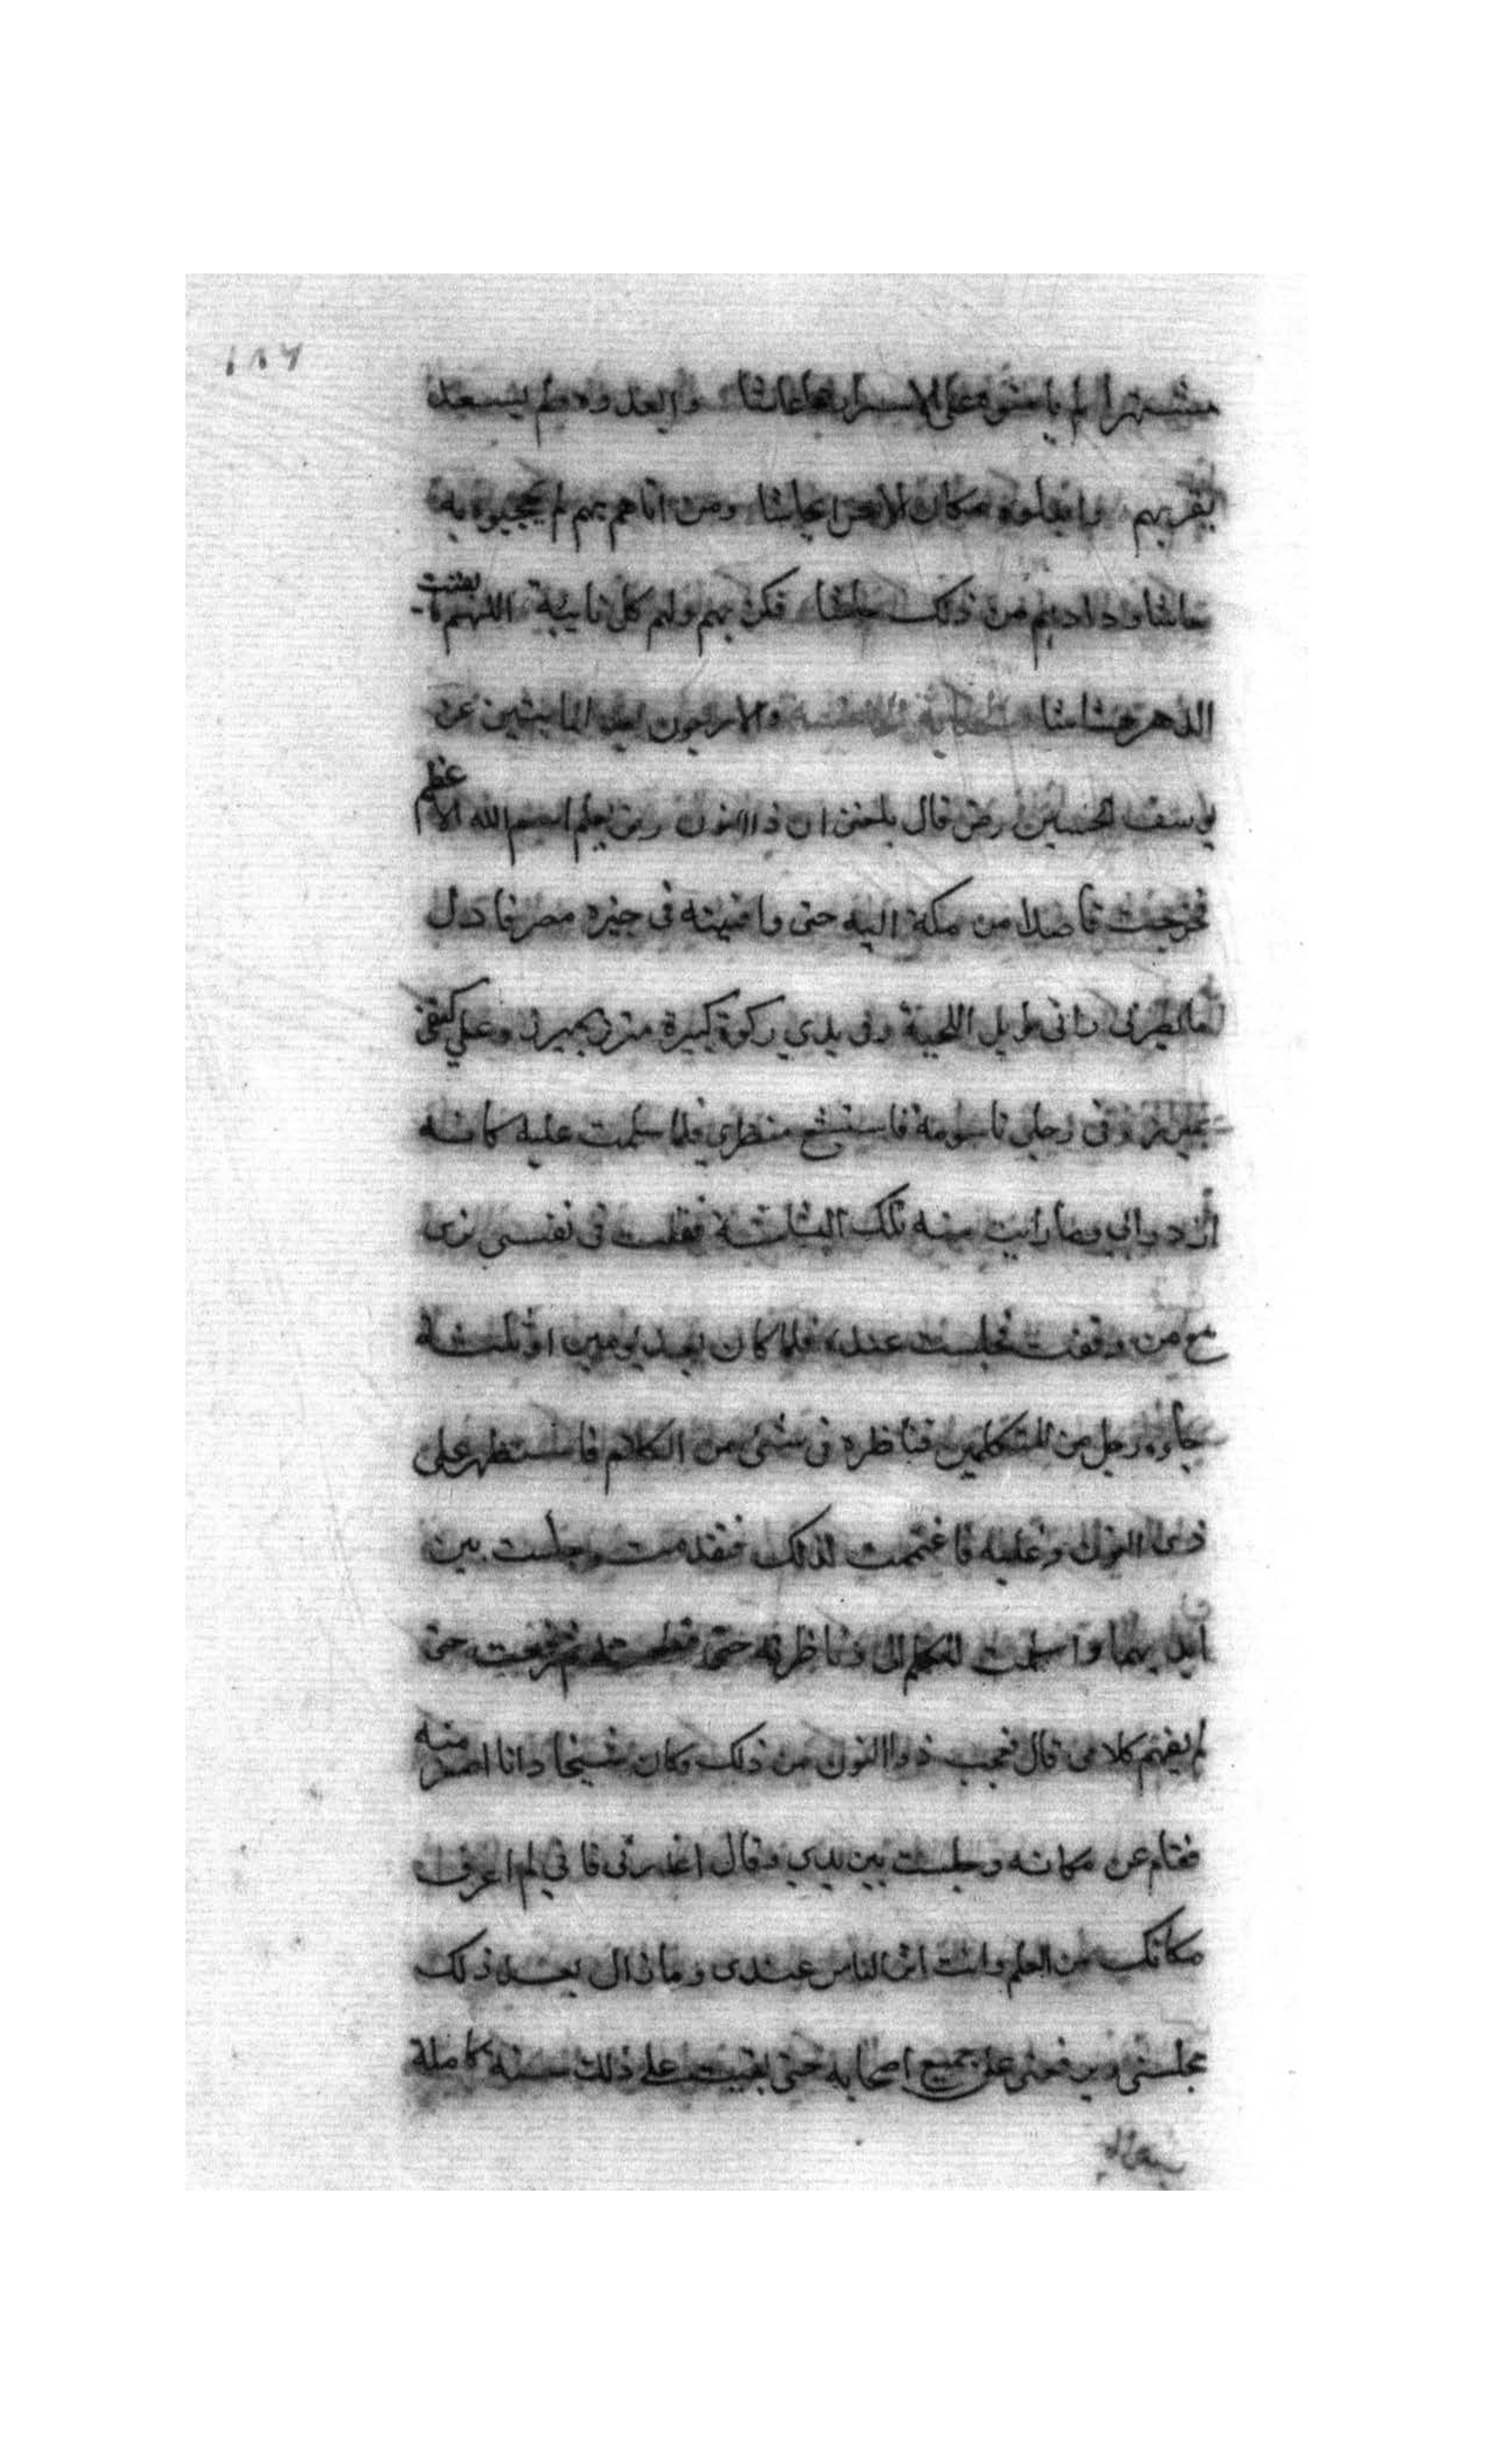 ١٨٦
مشتهرا لم يامنوه على الاسرار ما عاشا وابعدوه ولم يسعد
بقربهم وابدلوه مكان الانس ايحاشا ومن اتاهم بهم لم يحجبوه به
حاشا ودادهم من ذلك حاشا فكن بهم ولهم كل نايبة اللهم ما بقيت
الدهر هشاشا والاربعون بعد المايتين عن
يوسف الحسين رض قال بلغنى ان ذا النون رض يعلم اسم الله الاعظم
فخرجت قاصدا من مكة اليه حتى وافيته فى جيزة مصر فاول
ما بصرنى رانى طويل اللحية وفى يدي ركوة كبيرة متزر بميزر وعلي كتفى
ميزر وفى رجلى تاسومة فاستشنع منظري فلما سلمت عليه كانه
ازدرانى وما رايت منه تلك البشاشة فقلت فى نفسى ترى
مع من وقعت فجلست عنده فلما كان بعد يومين او ثلثة
جاوه رجل من المتكلمين فناظره فى شئ من الكلام فاستظهر على
ذى النون وغلبه فاغتممت لذلك فتقدمت وجلست بين
ايديهما واستلمت المتكلم الى وناظرته حتى قطعته ثم دققت حتى
لم يفهم كلامى قال فعجب ذوا النون من ذلك وكان شيخا وانا اصغر منه
فقام عن مكانه وجلست بين يدي وقال اعذرنى فانى لم اعرف
مكانك من العلم وانت اثر الناس عندى وما زال بعد ذلك
يجلسنى ويرفعنى على جميع اصحابه حتى بقيت على ذلك سنة كاملة